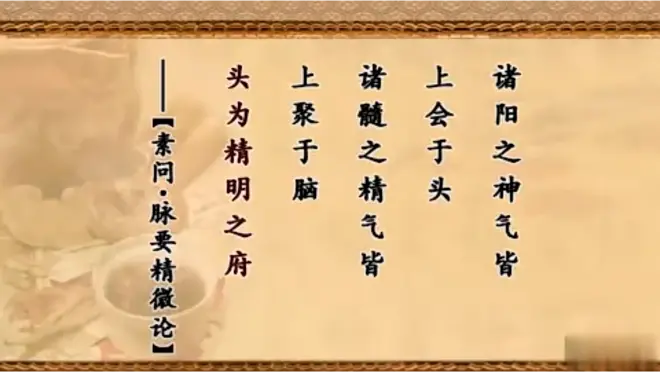 诸阳之神气皆
上会于头
诸髓之精气皆
上聚于脑
头为精明之府
——【素问·脉要精微论】